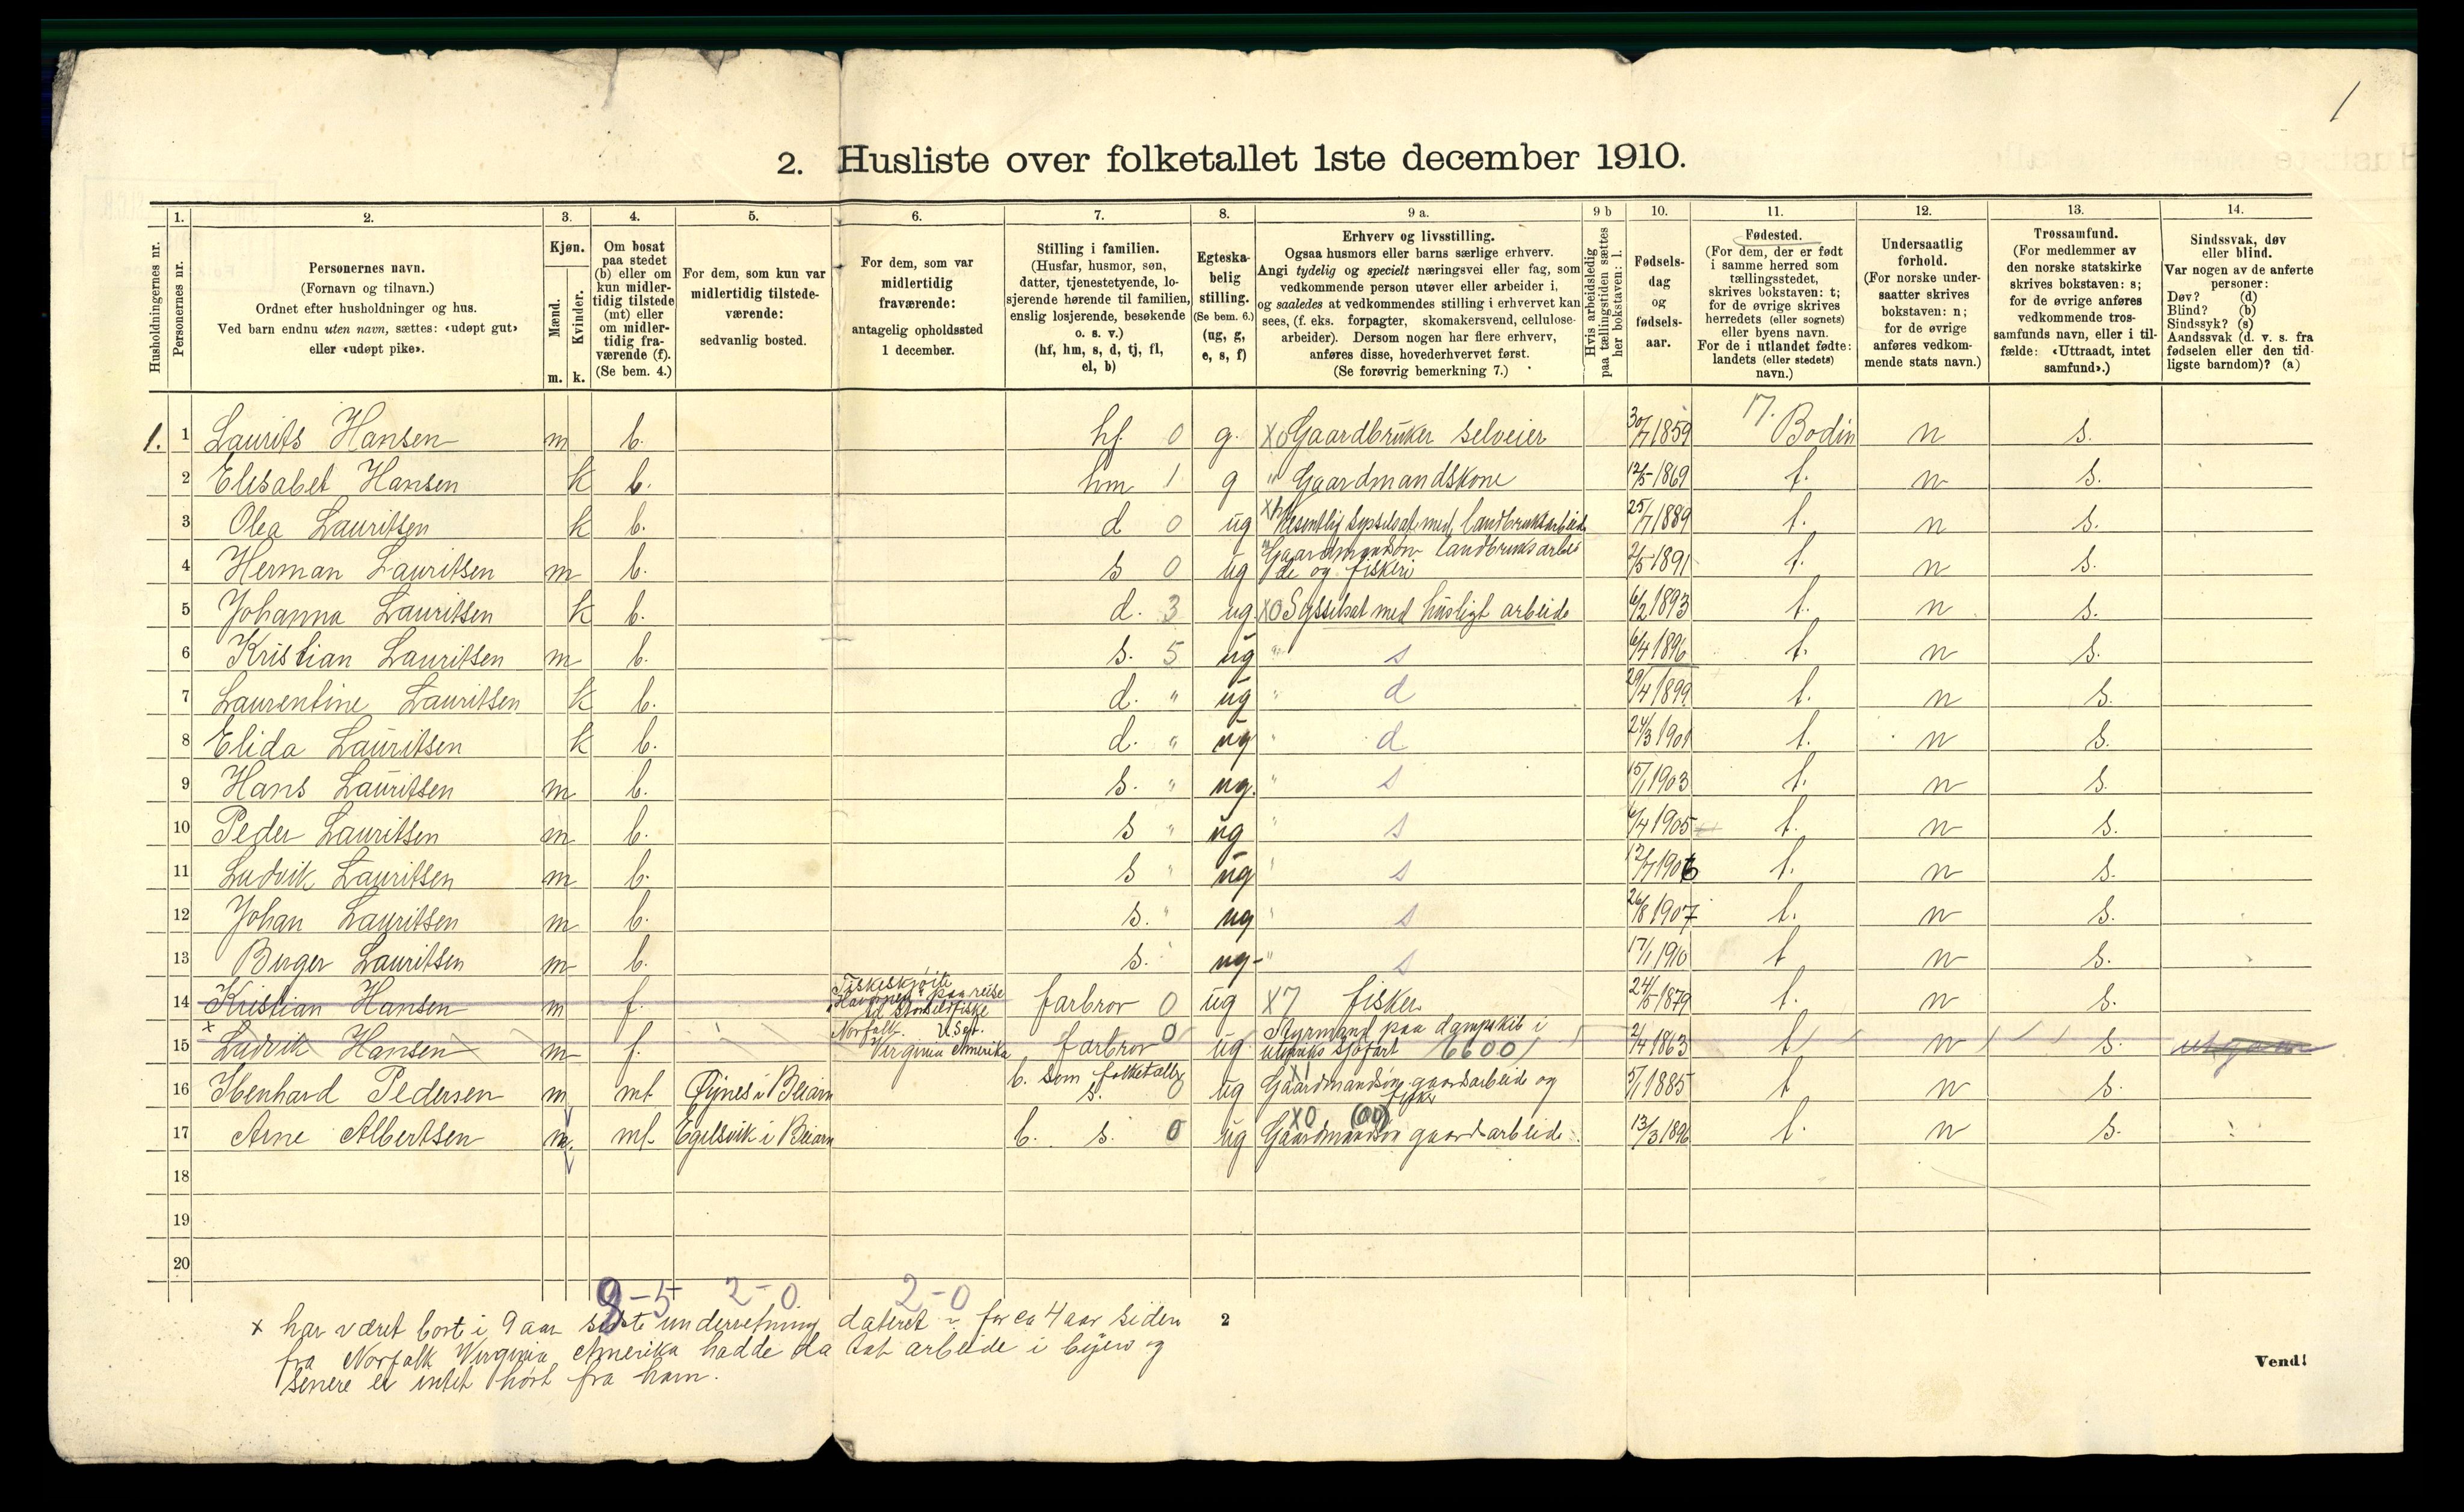 1
2. Husliste over folketallet 1ste december 1910.
Husholdningernes nr.
1. Personernes nr.
2. Personernes navn.
(Fornavn og tilnavn.)
Ordnet efter husholdninger og hus.
Ved barn endnu uten navn, sættes: «udøpt gut»
eller «udøpt pike».
3. Kjøn.
Mænd. m.
Kvinder. k.
4. Om bosat
paa stedet
(b) eller om
kun midler-
tidig tilstede
(mt) eller
om midler-
tidig fra-
værende (f).
(Se bem. 4.)
5. For dem, som kun var
midlertidig tilstede-
værende:
sedvanlig bosted.
6. For dem, som var
midlertidig
fraværende:
antagelig opholdssted
1 december.
7. Stilling i familien.
(Husfar, husmor, søn,
datter, tjenestetyende, lo-
sjerende hørende til familien,
enslig losjerende, besøkende
o. s. v.)
(hf, hm, s, d, tj, fl,
el, b)
8. Egteska-
belig
stilling.
(Se bem. 6.)
(ug, g,
e, s, f)
9 a. Erhverv og livsstilling.
Ogsaa husmors eller barns særlige erhverv.
Angi tydelig og specielt næringsvei eller fag, som
vedkommende person utøver eller arbeider i,
og saaledes at vedkommendes stilling i erhvervet kan
sees, (f. eks. forpagter, skomakersvend, cellulose-
arbeider). Dersom nogen har flere erhverv,
anføres disse, hovederhvervet først.
(Se forøvrig bemerkning 7.)
9 b Hvis arbeidsledig
paa tællingstiden sættes
her bokstaven: l.
10. Fødsels-
dag
og
fødsels-
aar.
11. Fødested.
(For dem, der er født
i samme herred som
tællingsstedet,
skrives bokstaven: t;
for de øvrige skrives
herredets (eller sognets)
eller byens navn.
For de i utlandet fødte:
landets (eller stedets)
navn.)
12. Undersaatlig
forhold.
(For norske under-
saatter skrives
bokstaven: n;
for de øvrige
anføres vedkom-
mende stats navn.)
13. Trossamfund.
(For medlemmer av
den norske statskirke
skrives bokstaven: s;
for de øvrige anføres
vedkommende tros-
samfunds navn, eller i til-
fælde: «Uttraadt, intet
samfund».)
14. Sindssvak, døv
eller blind.
Var nogen av de anførte
personer:
Døv? (d)
Blind? (b)
Sindssyk? (s)
Aandssvak (d. v. s. fra
fødselen eller den tid-
ligste barndom)? (a)
1. 1 Laurits Hansen m b. hf. 0 g. X0 Gaardbruker selveier 30/7 1859 17. Bodin n s.
2 Elisabet Hansen k b. hm 1 g " Gaardmandskone 12/5 1869 t. n s.
3 Olea Lauritsen k b. d 0 ug Væsentlig sysselsat med landbruksarbeide 25/7 1889 t. n s.
4 Herman Lauritsen m b. s 0 ug Gaardmandsøn landbruksarbei
de og fiskeri 2/5 1891 t. n s.
5 Johanna Lauritsen k b. d. 3 ug X0 Sysselsat med husligt arbeide 6/2 1893 t. n s.
6 Kristian Lauritsen m b. s. 5 ug " s 6/4 1896 t. n s.
7 Laurentine Lauritsen k b. d. " ug " d 29/4 1899 t. n s.
8 Elida Lauritsen k b. d. " ug " d 24/3 1901 t. n s.
9 Hans Lauritsen m b. s. " ug. " s 15/1 1903 t. n s.
10 Peder Lauritsen m b. s " ug " s 6/4 1905 t. n s.
11 Ludvik Lauritsen m b. s " ug " s 12/7 1906 t. n s.
12 Johan Lauritsen m b. s. " ug " s 26/8 1907 t. n s.
13 Birger Lauritsen m b. s. ug " s 17/1 1910 t n s.
14 Kristian Hansen m f. Fiskeskjøite
paa reise
til storsildfiske farbror 0 ug X7 fisker 24/5 1879 t. n s.
x
15 Ludvik Hansen m f. Norfalk
Virginia Amerika farbror 0 ug Styrmand paa dampskib i
utenriks sjøfart 6600 2/4 1863 t n s. utgaar
16 Ibenhard Pedersen m mt Øynes i Beiarn b. som folketæller
s. 0 ug Gaardmandsøn gaardsarbeide og
fisker 5/1 1885 t n s.
17 Arne Albertsen m. mt. Egelsvik i Beiarn b. s. 0 ug X0 Gaardmandsøn gaardsarbeide 13/3 1896 t. n s.
18
19
20
9-5 2-0 2-0
x har været bort i 9 aar siste underretning dateret for ca 4 aar siden
fra Norfalk Virginia Amerika hadde da tat arbeide i byen og
senere er intet hørt fra ham.
2
Vend!